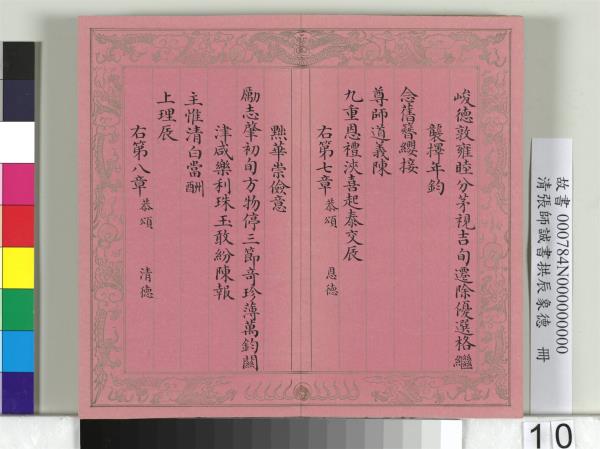 峻德敦雍睦分茅視吉旬遷除優選格繼
襲擇年鈞
念舊簪纓接
尊師道義陳
九重恩禮浹喜起泰交辰
右第七章 恭頌 恩德
黜華崇儉意
勵志肇初旬方物停三節奇珍薄萬鈞關
津咸樂利珠玉敢紛陳報
主惟清白當酬
上理辰
右第八章 恭頌 清德
故書 000784N000000000
清張師誠書拱辰象德 冊
10